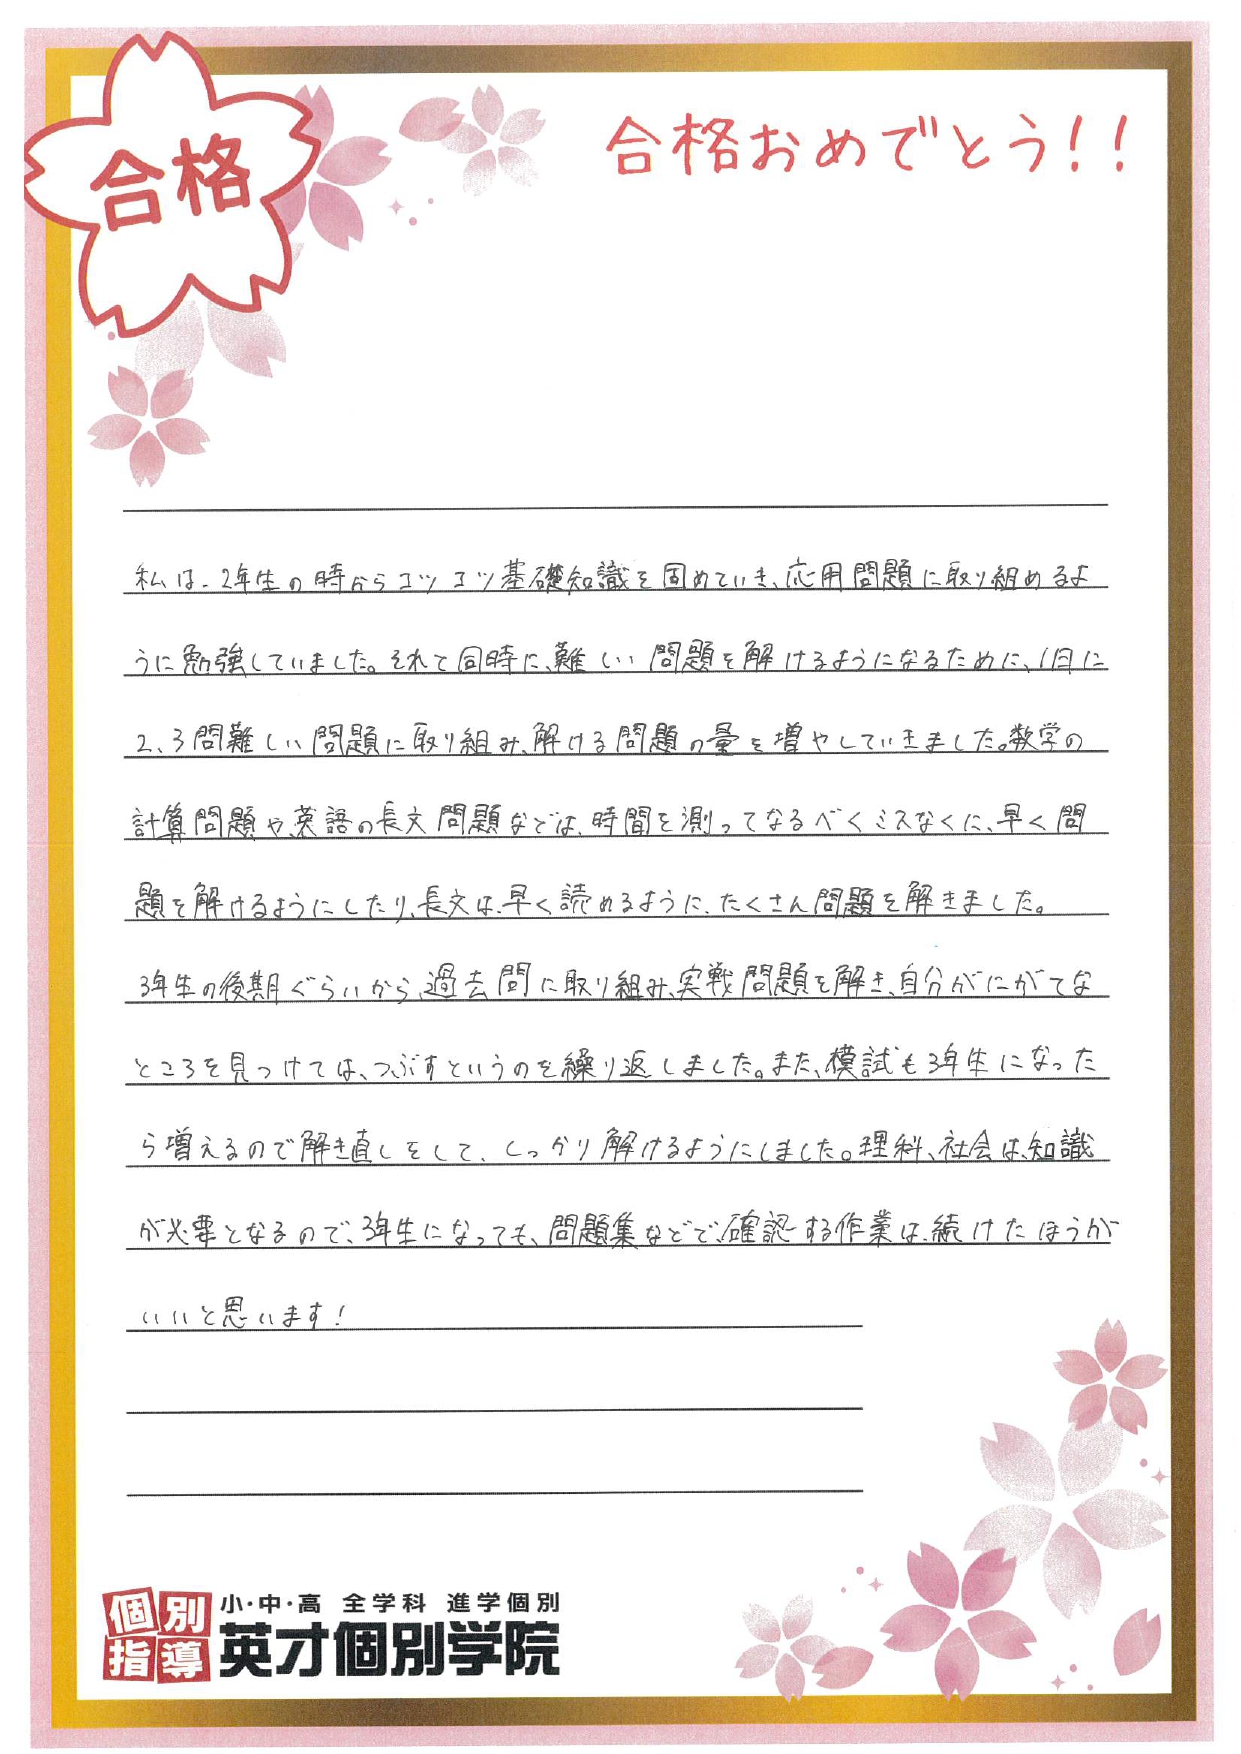 合格
合格おめでとう!!
私は、2年生の時からコツコツ基礎知識を固めていき、応用問題に取り組めるよ
うに勉強していました。それと同時に、難しい問題を解けるようになるために、1日に
2、3問難しい問題に取り組み、解ける問題の量を増やしていきました。数学の
計算問題や、英語の長文問題などは、時間を測ってなるべくミスなくに、早く問
題を解けるようにしたり、長文は、早く読めるように、たくさん問題を解きました。
3年生の後期ぐらいから、過去問に取り組み、実戦問題を解き、自分がにがてな
ところを見つけては、つぶすというのを繰り返しました。また、模試も3年生になった
ら増えるので解き直しをして、しっかり解けるようにしました。理科、社会は、知識
が必要となるので、3年生になっても、問題集などで、確認する作業は、続けたほうが
いいと思います!
個別
指導
小・中・高 全学科 進学個別
英才個別学院